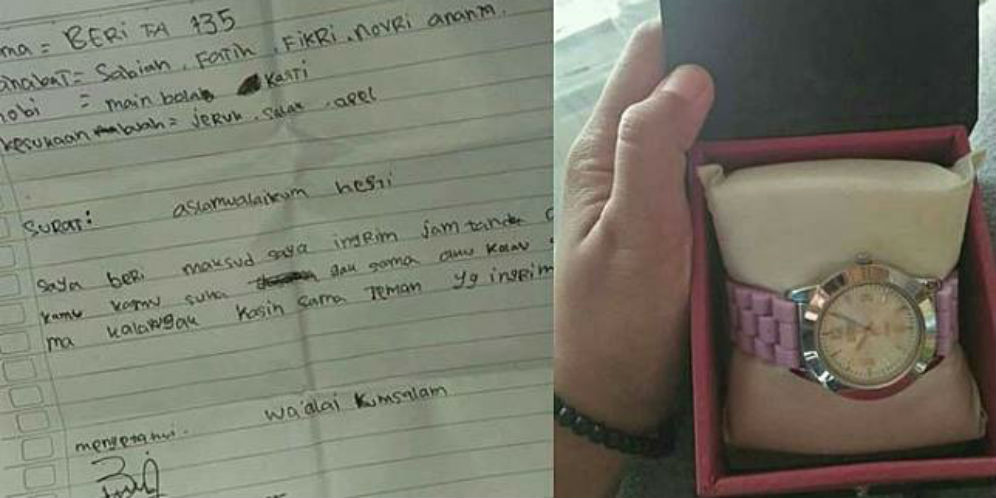 ma = BERi TA 135
anabat = Sabiah, Fatih, Fikri, novri ananm.
hobi = main bola Kasti
kesukaan buah = jeruk, salak, apel
SURAT: aslamualaikum hesti
saya beri maksud saya ingrim jam tandan
kamu kamu suka gau sama aku kalau
ma kalangau kasih sama teman yg ingrim
wa'alai kumsalam
mengetahui.